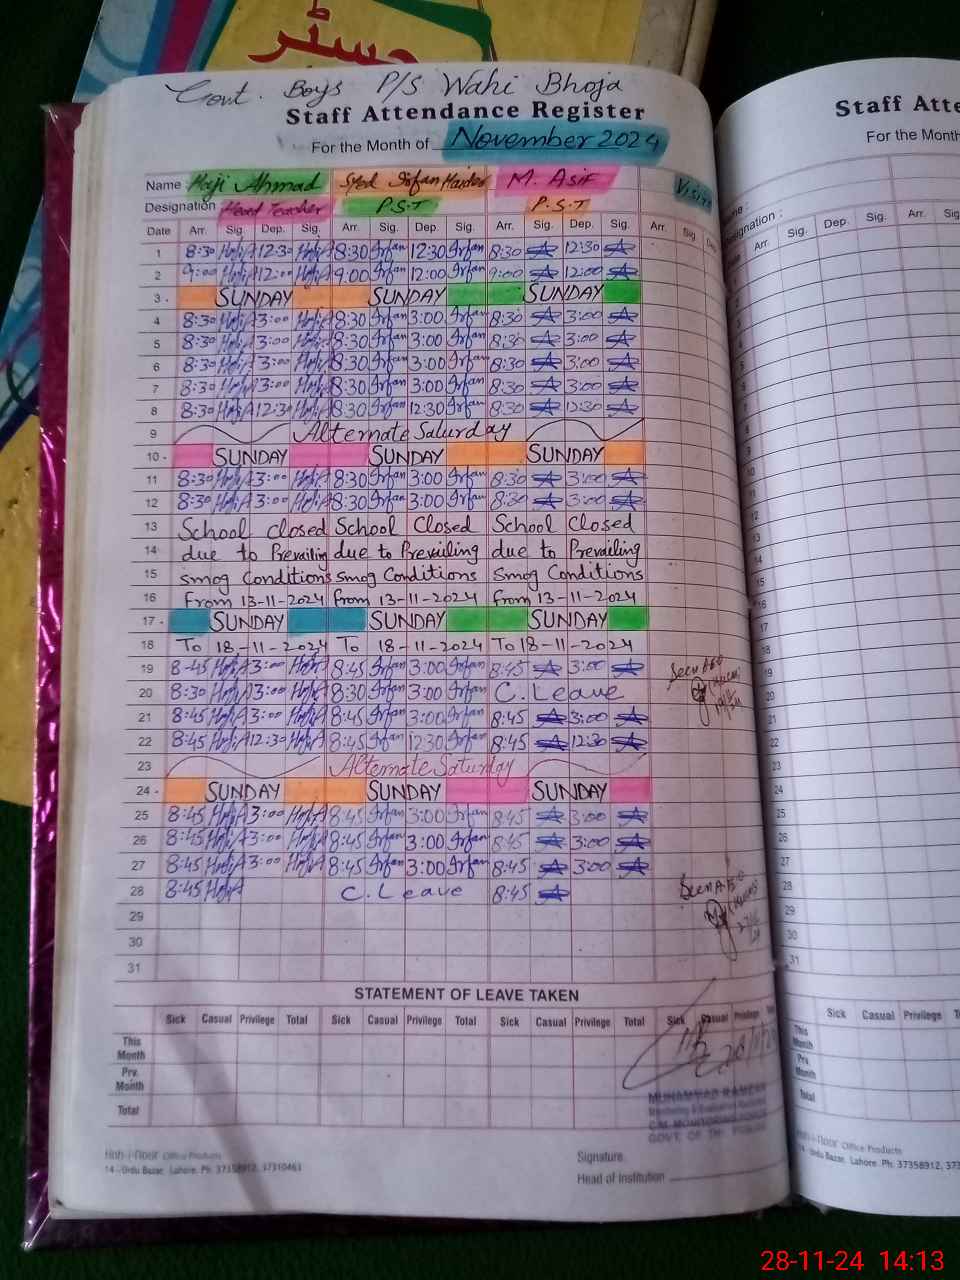 جسٹر
Govt. Boys P/S Wahi Bhoja
Staff Attendance Register
For the Month of November 2024
Name Haji Ahmad Syed Irfan Haider M. Asif Visits
Designation Head Teacher P.S.T P.S.T
Date Arr. Sig. Dep. Sig. Arr. Sig. Dep. Sig. Arr. Sig. Dep. Sig. Arr. Sig.
1 8:30 Haji A 12:30 Haji A 8:30 Irfan 12:30 Irfan 8:30 12:30
2 9:00 Haji A 12:00 Haji A 9:00 Irfan 12:00 Irfan 9:00 12:00
3 SUNDAY SUNDAY SUNDAY
4 8:30 Haji A 3:00 Haji A 8:30 Irfan 3:00 Irfan 8:30 3:00
5 8:30 Haji A 3:00 Haji A 8:30 Irfan 3:00 Irfan 8:30 3:00
6 8:30 Haji A 3:00 Haji A 8:30 Irfan 3:00 Irfan 8:30 3:00
7 8:30 Haji A 3:00 Haji A 8:30 Irfan 3:00 Irfan 8:30 3:00
8 8:30 Haji A 12:30 Haji A 8:30 Irfan 12:30 Irfan 8:30 12:30
9 Alternate Saturday
10 SUNDAY SUNDAY SUNDAY
11 8:30 Haji A 3:00 Haji A 8:30 Irfan 3:00 Irfan 8:30 3:00
12 8:30 Haji A 3:00 Haji A 8:30 Irfan 3:00 Irfan 8:30 3:00
13 School closed School Closed School Closed
14 due to Prevailing due to Prevailing due to Prevailing
15 smog Conditions smog Conditions Smog Conditions
16 From 13-11-2024 from 13-11-2024 from 13-11-2024
17 SUNDAY SUNDAY SUNDAY
18 To 18-11-2024 To 18-11-2024 To 18-11-2024
19 8-45 Haji A 3:00 Haji A 8:45 Irfan 3:00 Irfan 8:45 3:00
20 8:30 Haji A 3:00 Haji A 8:30 Irfan 3:00 Irfan C. Leave
21 8:45 Haji A 3:00 Haji A 8:45 Irfan 3:00 Irfan 8:45 3:00
22 8:45 Haji A 12:30 Haji A 8:45 Irfan 12:30 Irfan 8:45 12:30
23 Alternate Saturday
24 SUNDAY SUNDAY SUNDAY
25 8:45 Haji A 3:00 Haji A 8:45 Irfan 3:00 Irfan 8:45 3:00
26 8:45 Haji A 3:00 Haji A 8:45 Irfan 3:00 Irfan 8:45 3:00
27 8:45 Haji A 3:00 Haji A 8:45 Irfan 3:00 Irfan 8:45 3:00
28 8:45 Haji A C. Leave 8:45
29
30
31
STATEMENT OF LEAVE TAKEN
Sick Casual Privilege Total Sick Casual Privilege Total Sick Casual Privilege Total Sick Casual Privilege
This Month
Prv. Month
Total
Office Products
14 - Urdu Bazar, Lahore. Ph: 37358912, 37310463
Signature.
Head of Institution
Staff Atte
For the Month
Designation :
Arr. Sig. Dep. Sig. Arr. Sig.
Sick Casual Privilege
This Month
Prv. Month
Total
Office Products
Urdu Bazar, Lahore. Ph: 37358912, 373
28-11-24 14:13